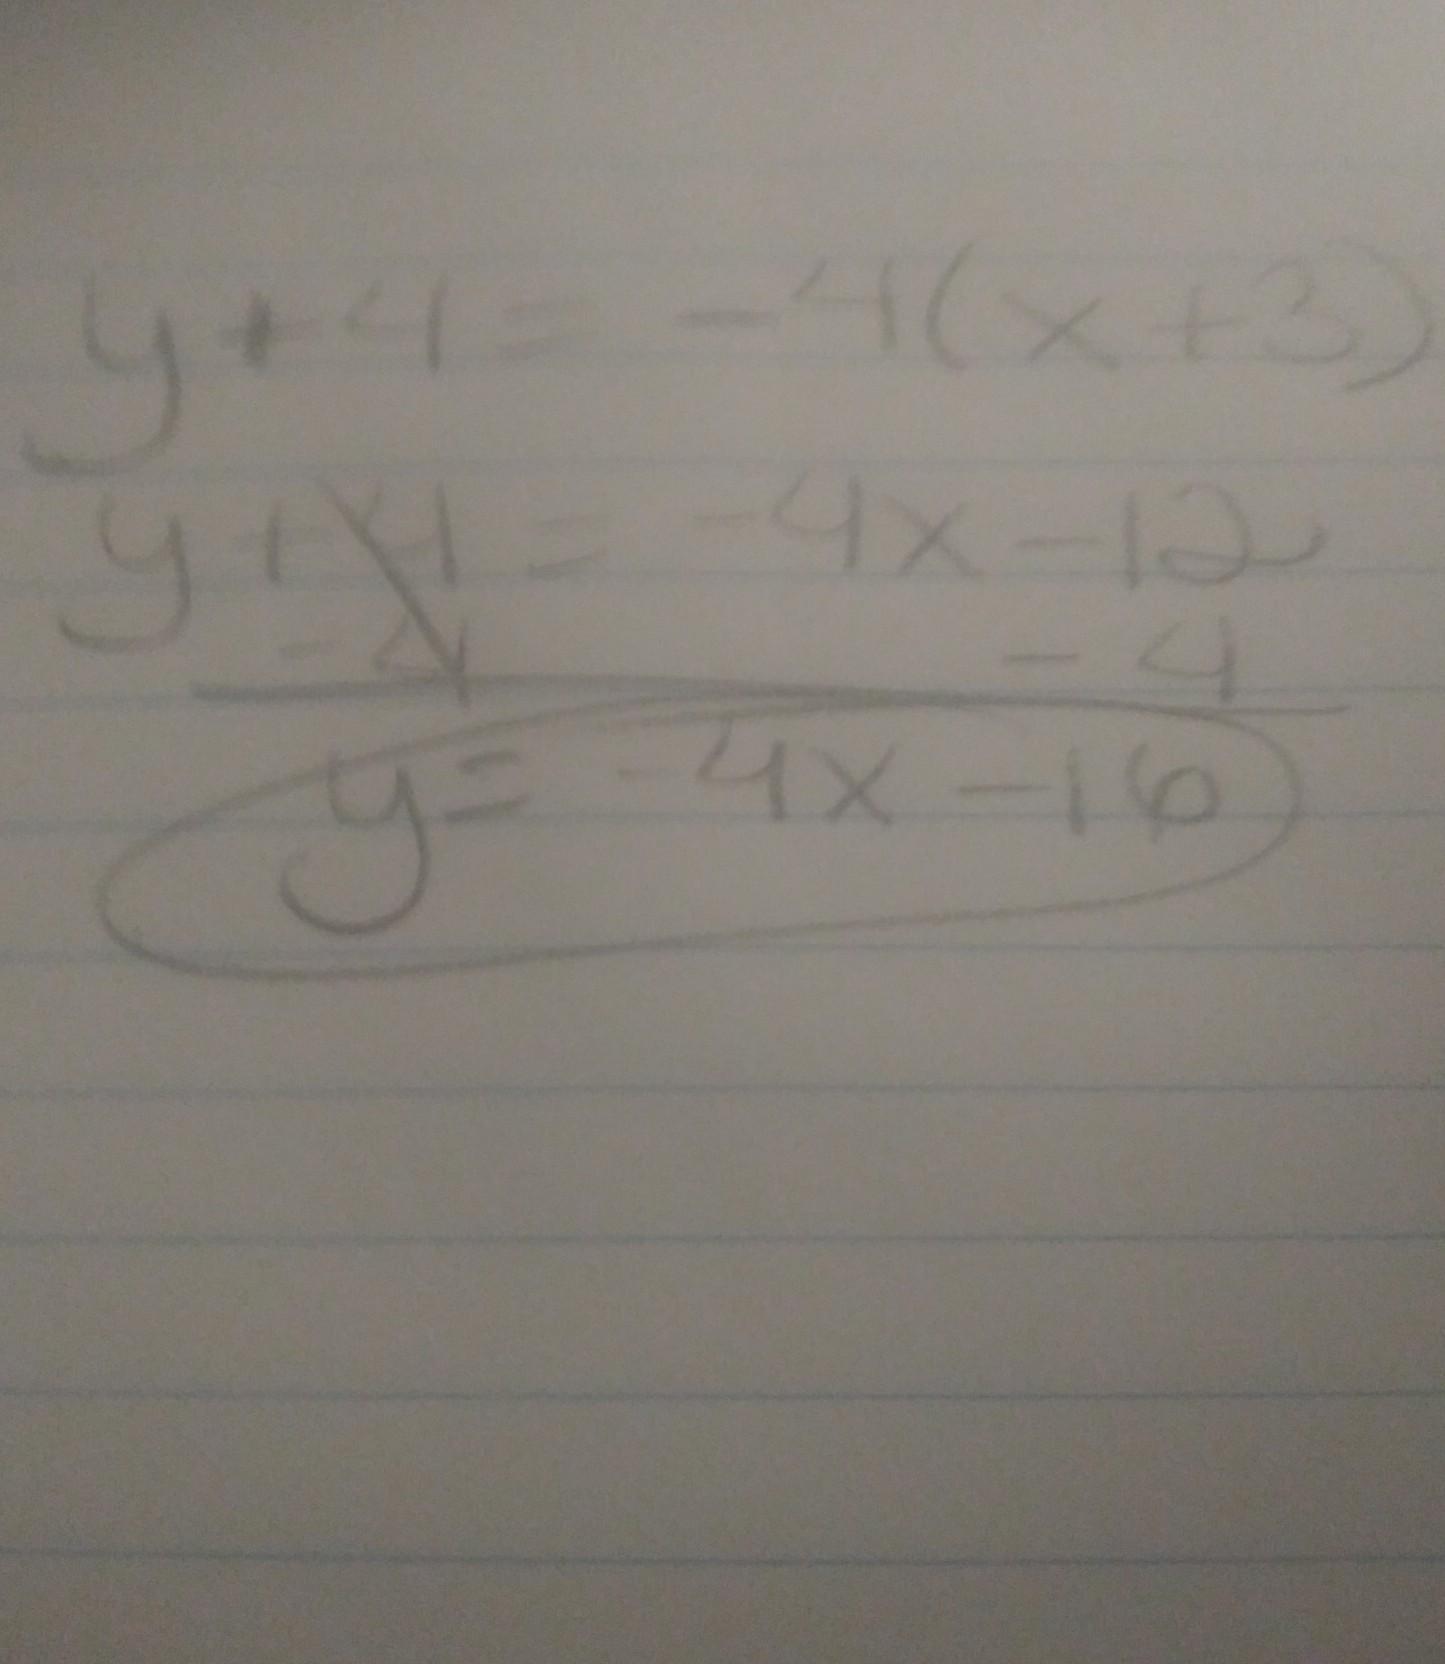 y + 4 = -4(x + 3)
y + 4 = -4x - 12
- 4 - 4
y = -4x - 16